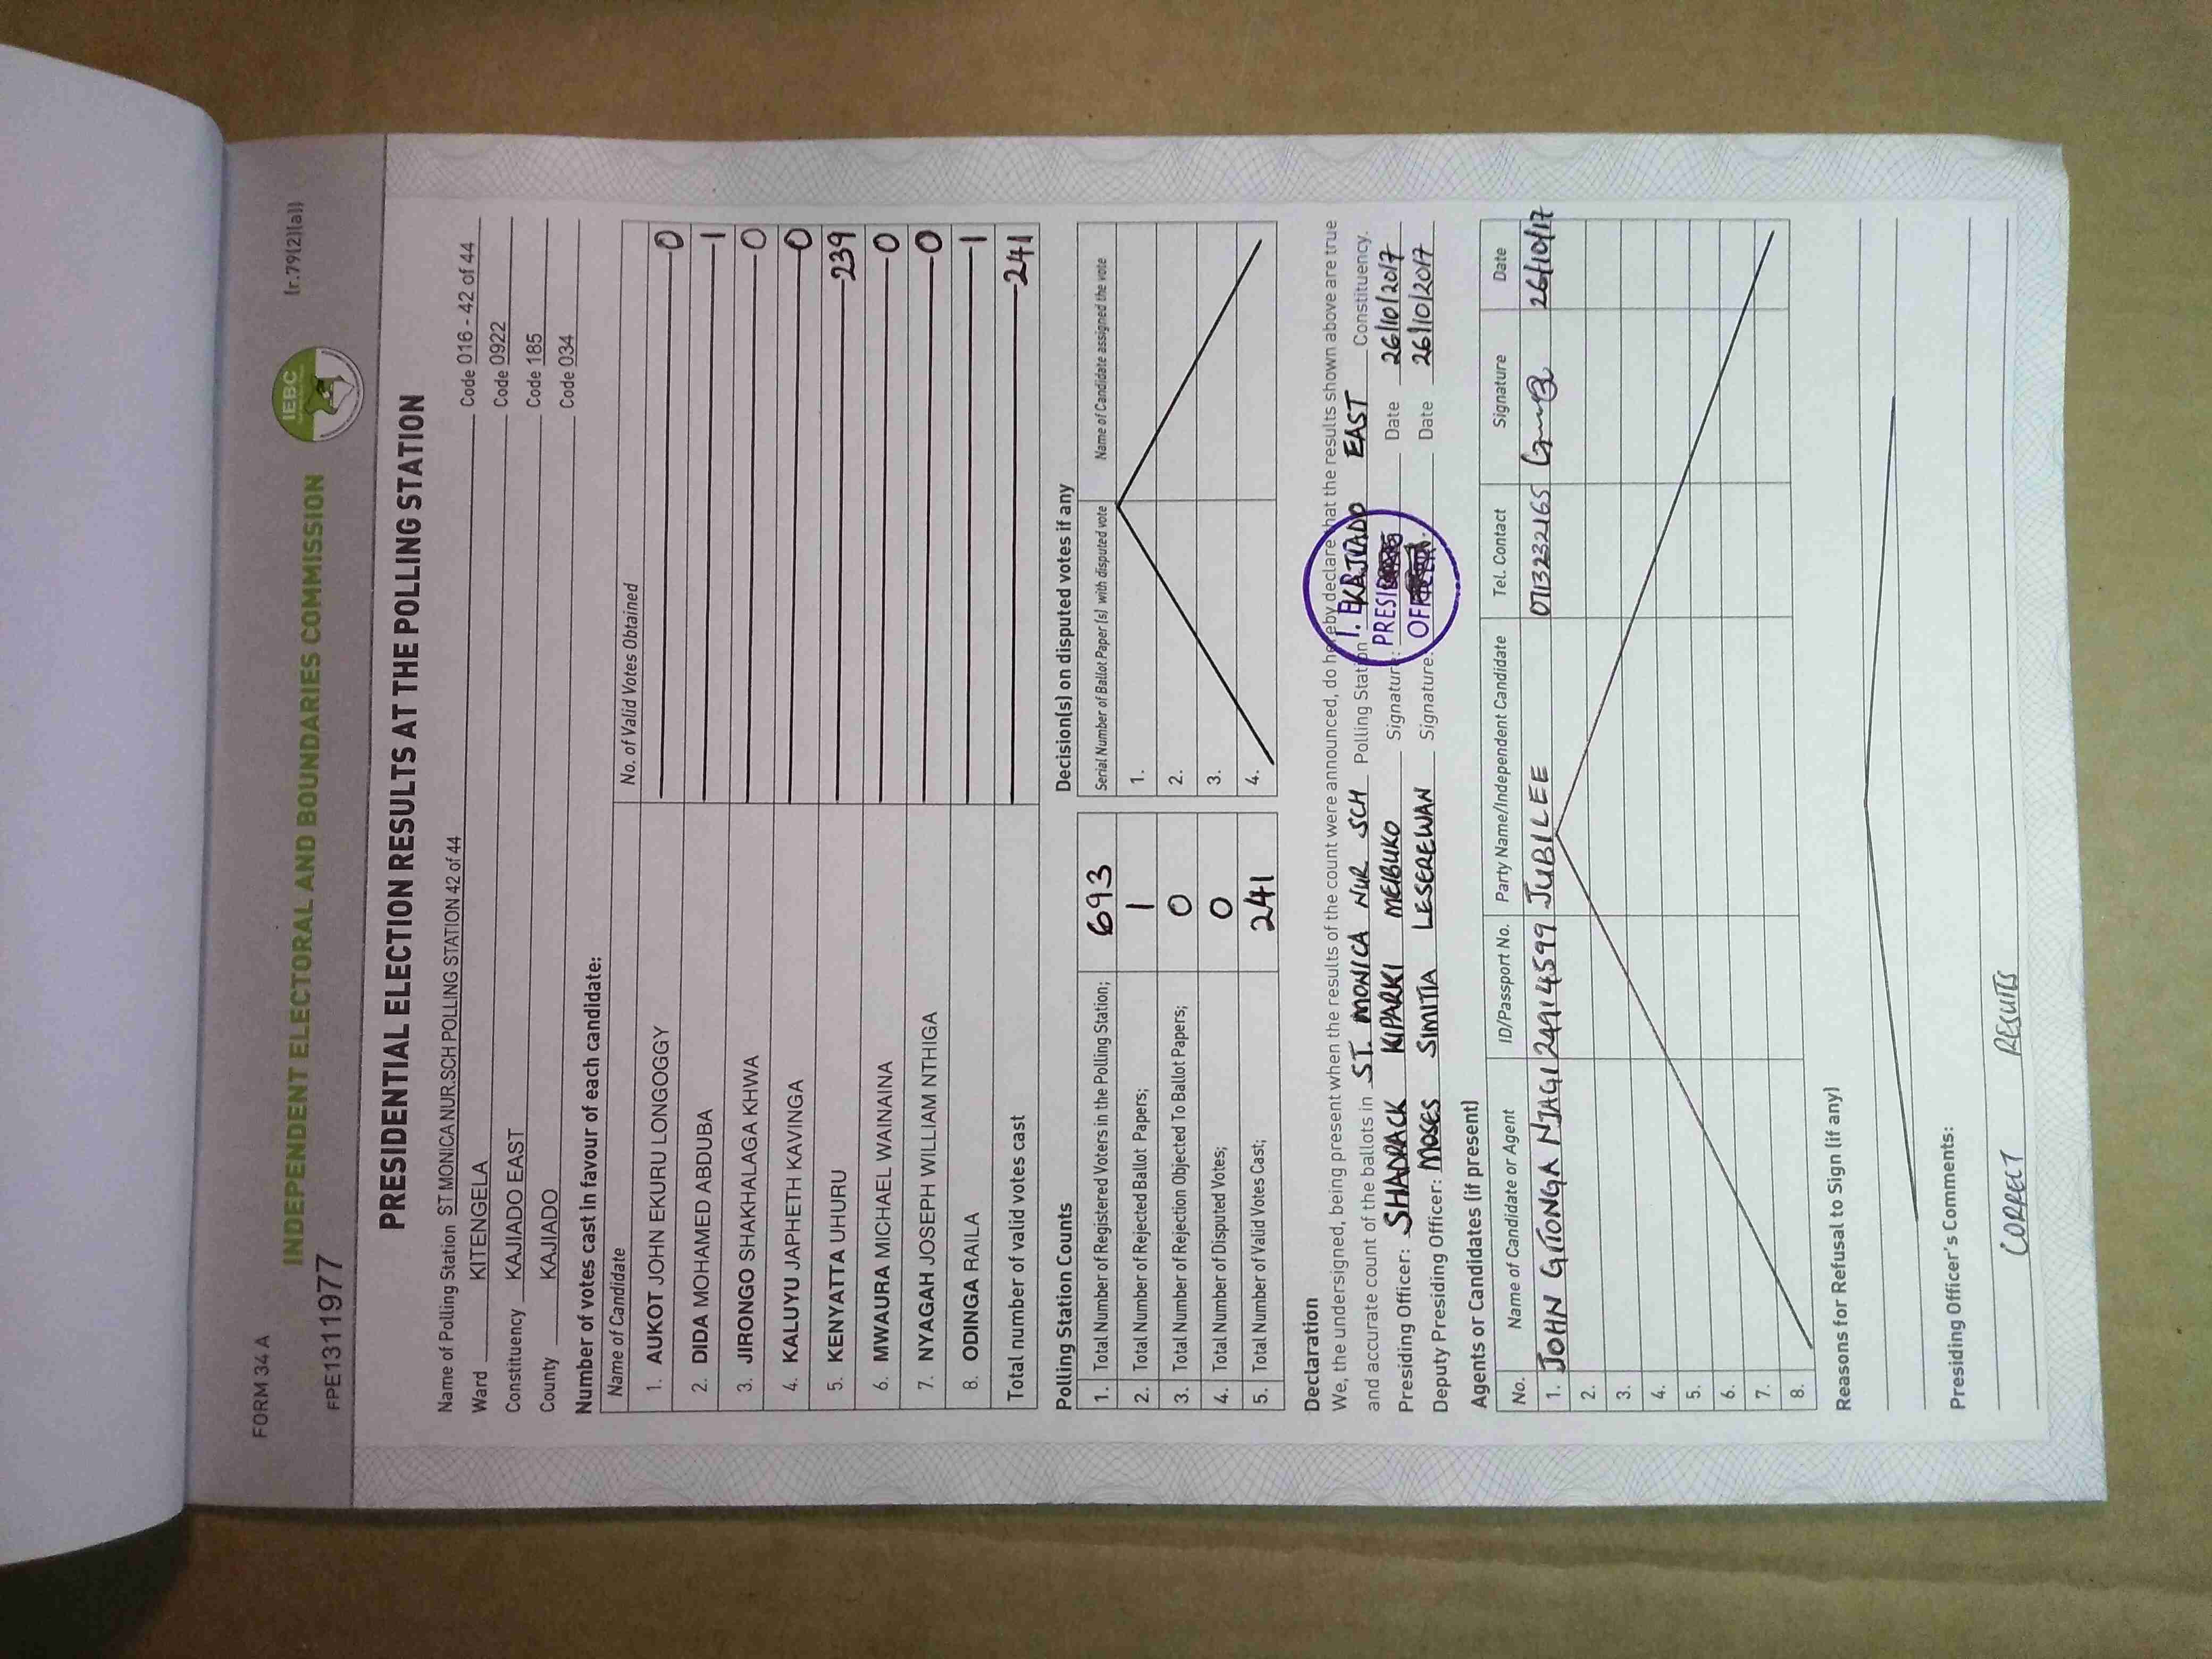 FORM 34 A
(r.79(2)(a))
IEBC
INDEPENDENT ELECTORAL AND BOUNDARIES COMMISSION
FPE1311977
PRESIDENTIAL ELECTION RESULTS AT THE POLLING STATION
Name of Polling Station ST MONICA NUR.SCH POLLING STATION 42 of 44 Code 016 - 42 of 44
Ward KITENGELA Code 0922
Constituency KAJIADO EAST Code 185
County KAJIADO Code 034
Number of votes cast in favour of each candidate:
Name of Candidate No. of Valid Votes Obtained
1. AUKOT JOHN EKURU LONGOGGY 0
2. DIDA MOHAMED ABDUBA 1
3. JIRONGO SHAKHALAGA KHWA 0
4. KALUYU JAPHETH KAVINGA 0
5. KENYATTA UHURU 239
6. MWAURA MICHAEL WAINAINA 0
7. NYAGAH JOSEPH WILLIAM NTHIGA 0
8. ODINGA RAILA 1
Total number of valid votes cast 241
Polling Station Counts
1. Total Number of Registered Voters in the Polling Station; 693
2. Total Number of Rejected Ballot Papers; 1
3. Total Number of Rejection Objected To Ballot Papers; 0
4. Total Number of Disputed Votes; 0
5. Total Number of Valid Votes Cast; 241
Decision(s) on disputed votes if any
Serial Number of Ballot Paper(s) with disputed vote Name of Candidate assigned the vote
1.
2.
3.
4.
Declaration
We, the undersigned, being present when the results of the count were announced, do hereby declare that the results shown above are true
and accurate count of the ballots in ST. MONICA NUR SCH Polling Station KAJIADO EAST Constituency.
Presiding Officer: SHADRACK KIPARKI MEIBUKO Signature: Date 26/10/2017
Deputy Presiding Officer: MOSES SIMITIA LESEREWAN Signature: Date 26/10/2017
Agents or Candidates (if present)
No. Name of Candidate or Agent ID/Passport No. Party Name/Independent Candidate Tel. Contact Signature Date
1. JOHN GITONGA NJAGI 24914599 JUBILEE 0713232165 26/10/17
2.
3.
4.
5.
6.
7.
8.
Reasons for Refusal to Sign (if any)
Presiding Officer's Comments:
CORRECT RESULTS